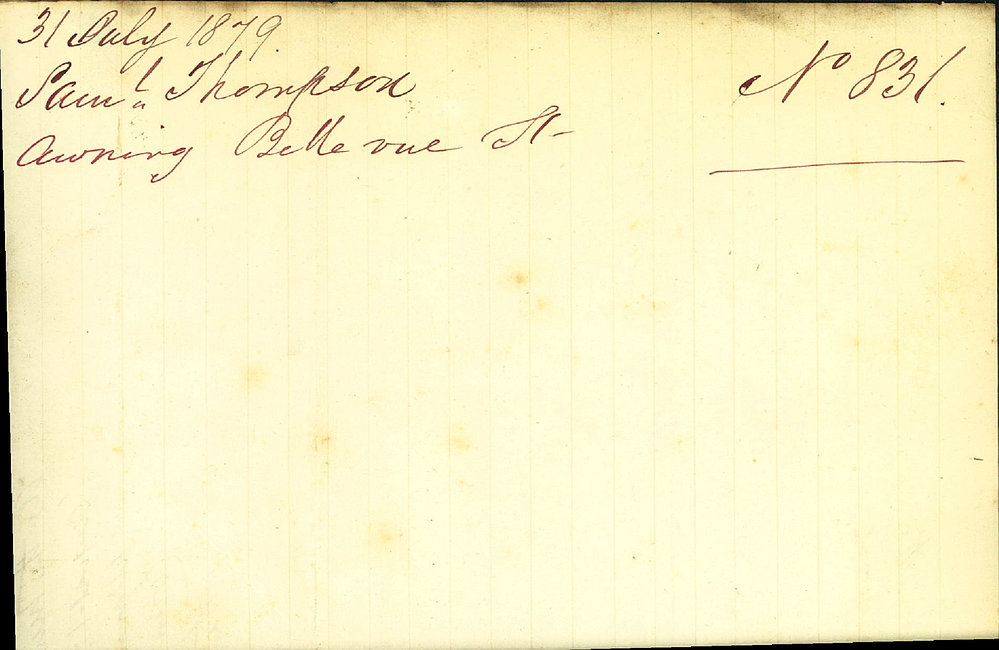 31 July 1879.
Saml Thompson
Awning Belle vue St
No 831.